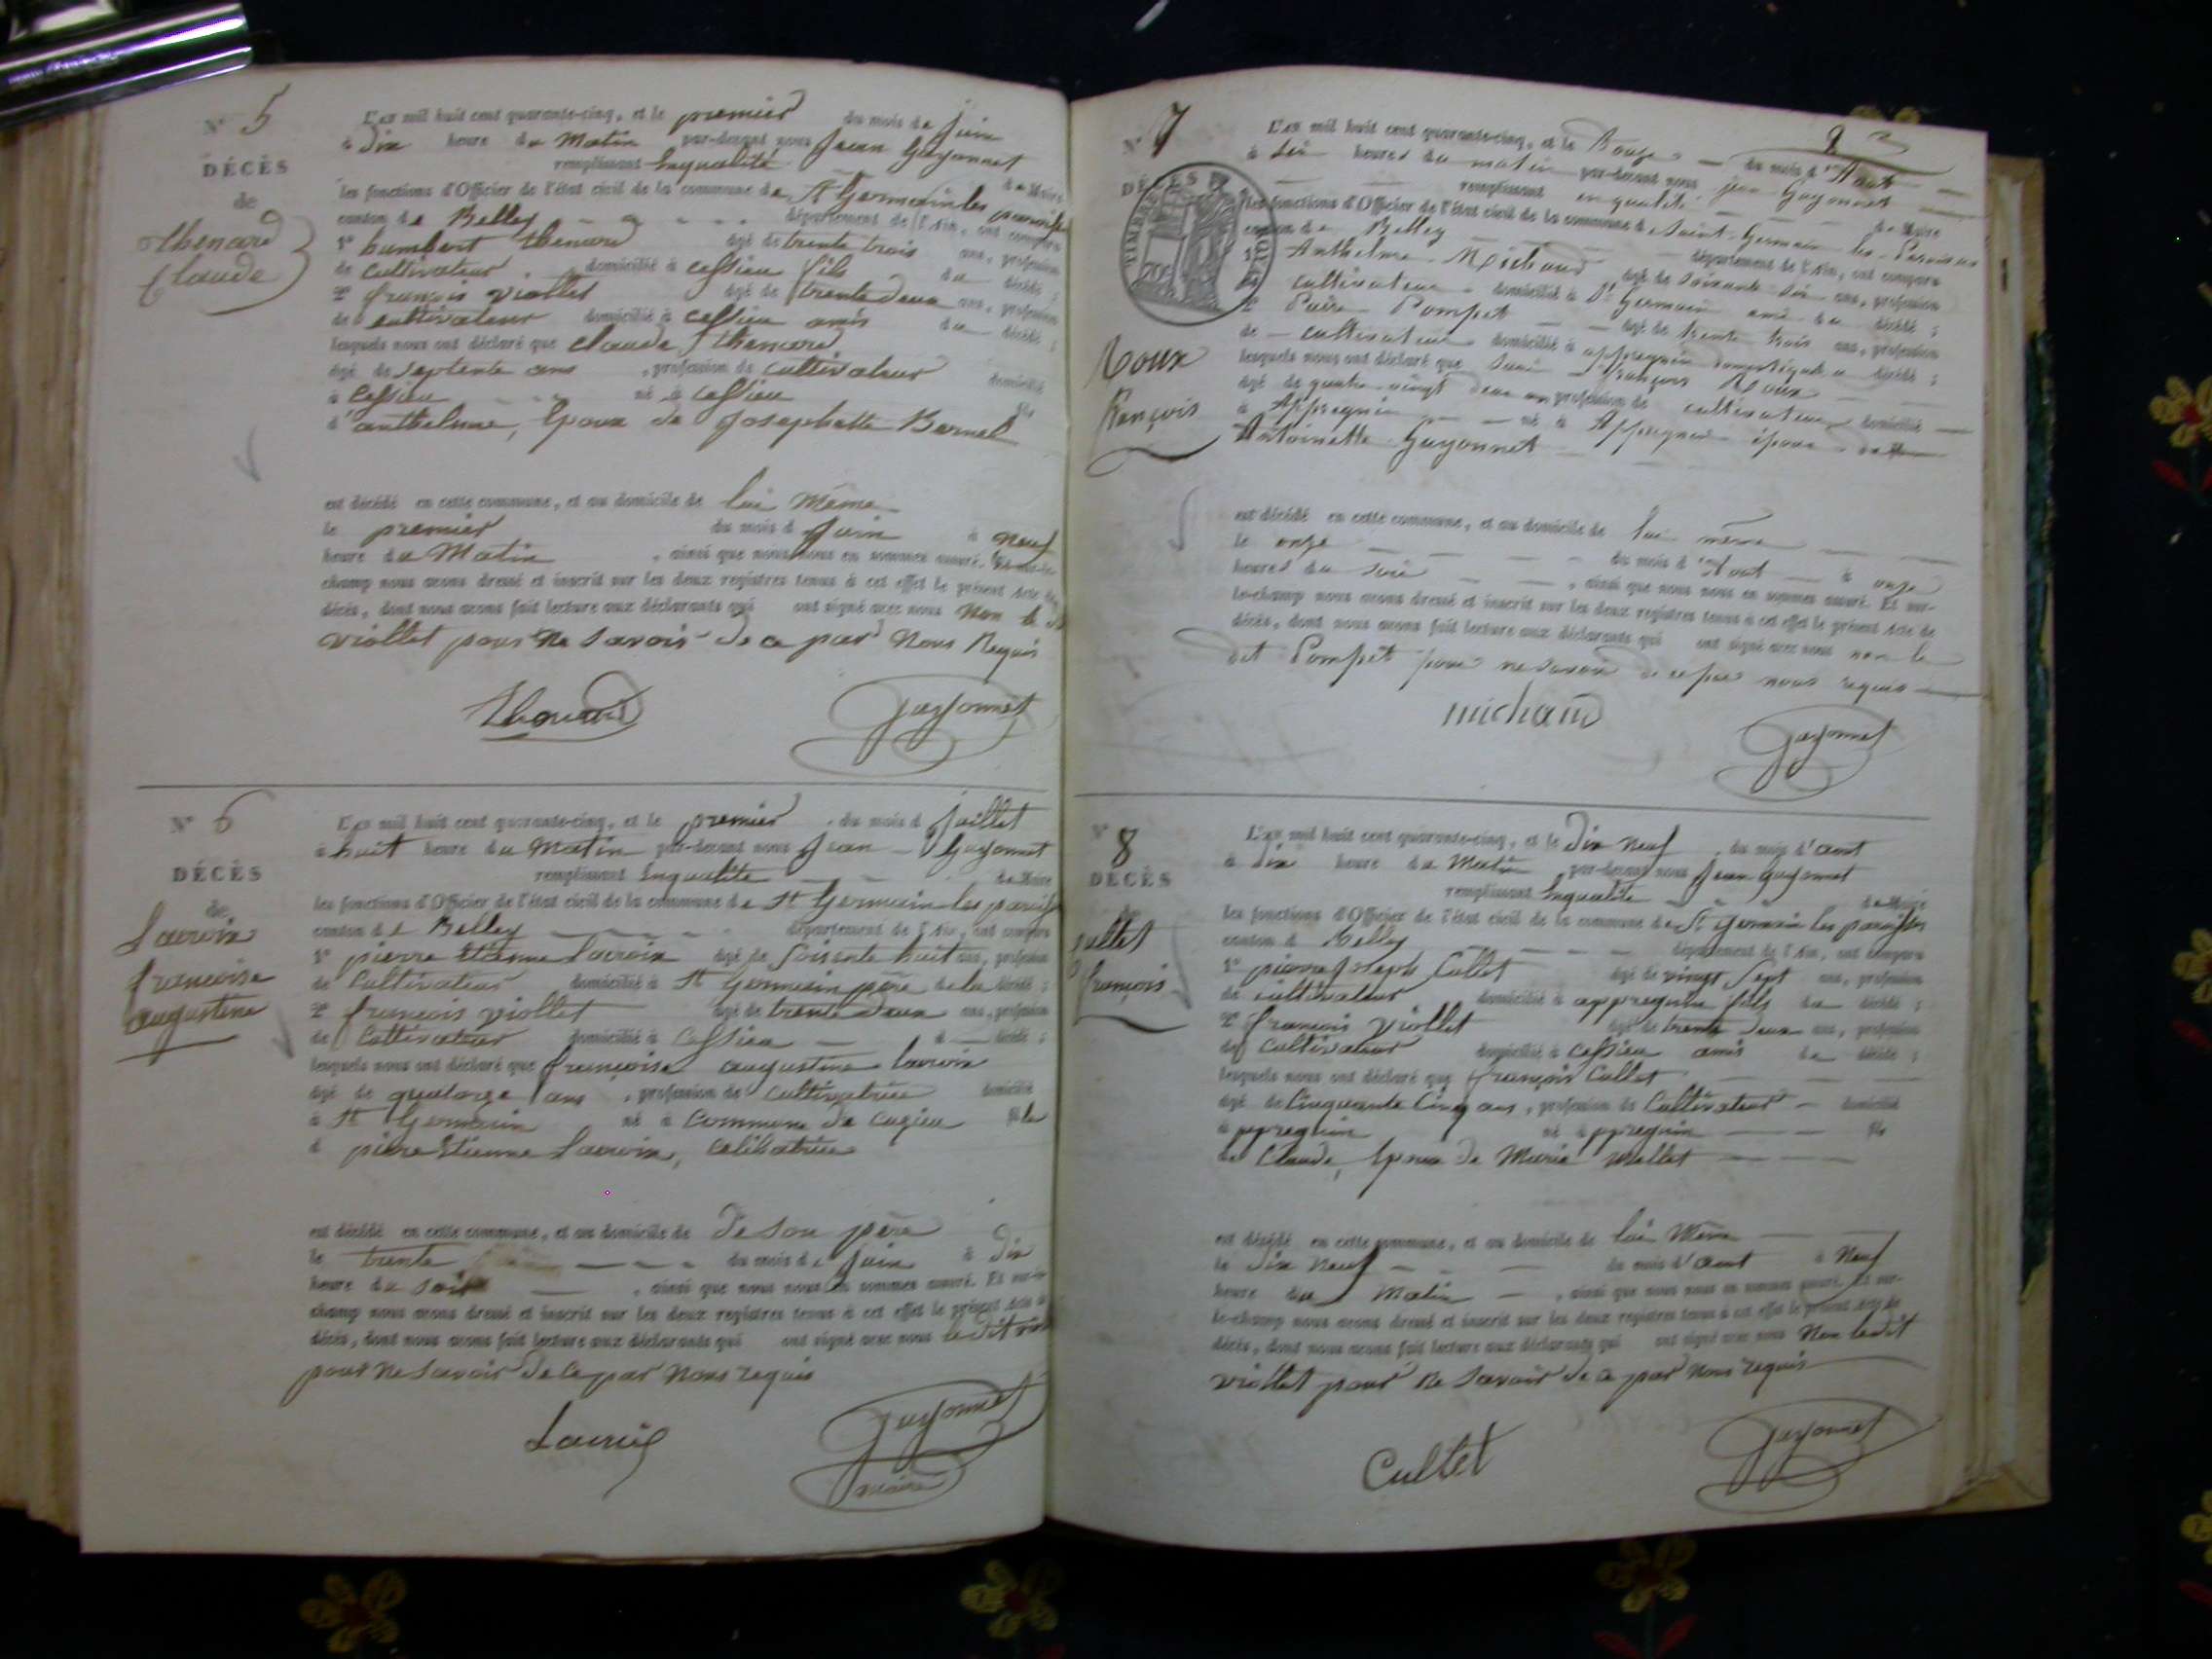 N° 5
DÉCÈS
de
thenard
Claude
L'an mil huit cent quarante-cinq, et le premier du mois de Juin
à dix heure du Matin par-devant nous Jean Guyonnet
remplissant Enqualité de Maire
les fonctions d'Officier de l'état civil de la commune de St Germain les paroisses
canton de Belley département de l'Ain, ont comparu
1° humbert thenard âgé de trente trois ans, profession
de cultivateur domicilié à cessieu fils du décédé ;
2° françois viollet âgé de trente deux ans, profession
de cultivateur domicilié à cessieu amis du décédé ;
lesquels nous ont déclaré que claude thenard
âgé de septente ans , profession de cultivateur domicilié
à Cessieu né à cessieu fils
d'anthelme, Epoux de Josephatte Bernel
est décédé en cette commune, et au domicile de lui Même
le premier du mois d Juin à neuf
heure du Matin , ainsi que nous nous en sommes assuré.
champ nous avons dressé et inscrit sur les deux registres tenus à cet effet le présent Acte de
décès, dont nous avons fait lecture aux déclarants qui ont signé avec nous Non le
viollet pour Ne Savoir de ce par Nous Requis
thenard Guyonnet
N° 6
DÉCÈS
de
Lacroix
françoise
augustine
L'an mil huit cent quarante-cinq, et le premier du mois d Juillet
à huit heure du Matin par-devant nous Jean Guyonnet
remplissant Enqualité de Maire
les fonctions d'Officier de l'état civil de la commune de St Germain les paroiss
canton de Belley département de l'Ain, ont comparu
1° pierre Etienne Lacroix âgé de Soissente huit ans, profession
de Cultivateur domicilié à St Germain père de la décédé ;
2° françois viollet âgé de trente deux ans, profession
de Cultivateur domicilié à Cessieu d décédé ;
lesquels nous ont déclaré que françoise augustine lacroix
âgé de quatorze ans , profession de Cultivatrice domicilié
à St Germain né à Commune de cuzieu fille
d pierre Etienne Lacroix, Celibatrice
est décédé en cette commune, et au domicile de De son père
le trente du mois de Juin à Dix
heure du soir , ainsi que nous nous en sommes assuré. Et sur-le
champ nous avons dressé et inscrit sur les deux registres tenus à cet effet le présent Acte de
décès, dont nous avons fait lecture aux déclarants qui ont signé avec nous ledit
pour Ne Savoir de ce par Nous requis
Lacroix Guyonnet
maire
2
N° 7
DÉCÈS
TIMBRE ROYAL
Roux
François
L'an mil huit cent quarante-cinq, et le Douze du mois d'Aout
à Six heures du matin par-devant nous jean Guyonnet
remplissant en qualité de Maire
les fonctions d'Officier de l'état civil de la commune de Saint-Germain-les-Paroisses
canton de Belley département de l'Ain, ont comparu
1° Anthelme Michaud âgé de soixante six ans, profession
de cultivateur domicilié à St Germain ami du décédé ;
2° Pompet âgé de trente trois ans, profession
de cultivateur domicilié à appregnin domestique décédé ;
lesquels nous ont déclaré que François Roux
âgé de quatre vingt deux ans profession de cultivateur domicilié
à Appregnin né à Appregnin époux
Antoinette Guyonnet
est décédé en cette commune, et au domicile de lui même
le onze du mois d'Aout à onze
heures du soir , ainsi que nous nous en sommes assuré. Et sur-
le-champ nous avons dressé et inscrit sur les deux registres tenus à cet effet le présent Acte de
décès, dont nous avons fait lecture aux déclarants qui ont signé avec nous non le
dit Pompet pour ne savoir de ce par nous requis
michaud
Guyonnet
N° 8
DÉCÈS
de
Cullet
françois
L'an mil huit cent quarante-cinq, et le Dix neuf du mois d'aout
à dix heure du Matin par-devant nous Jean Guyonnet
remplissant Enqualité de Maire
les fonctions d'Officier de l'état civil de la commune de St Germain les paroisses
canton d Belley département de l'Ain, ont comparu
1° pierre Joseph Cullet âgé de vingt sept ans, profession
de cultivateur domicilié à appregnin fils du décédé ;
2° françois viollet âgé de trente deux ans, profession
de Cultivateur domicilié à Cessieu amis du décédé ;
lesquels nous ont déclaré que françois Cullet
âgé de Cinquante Cinq ans, profession de Cultivateur domicilié
à ppregnin né à ppregnin fils
de Claude, Epoux de Marie viollet
est décédé en cette commune, et au domicile de lui Même
le Dix Neuf du mois d'aout à Neuf
heure du Matin , ainsi que nous nous en sommes assuré. Et sur-
le-champ nous avons dressé et inscrit sur les deux registres tenus à cet effet le présent Acte de
décès, dont nous avons fait lecture aux déclarants qui ont signé avec nous Non ledit
viollet pour Ne Savoir de ce par Nous requis
Cultet Guyonnet